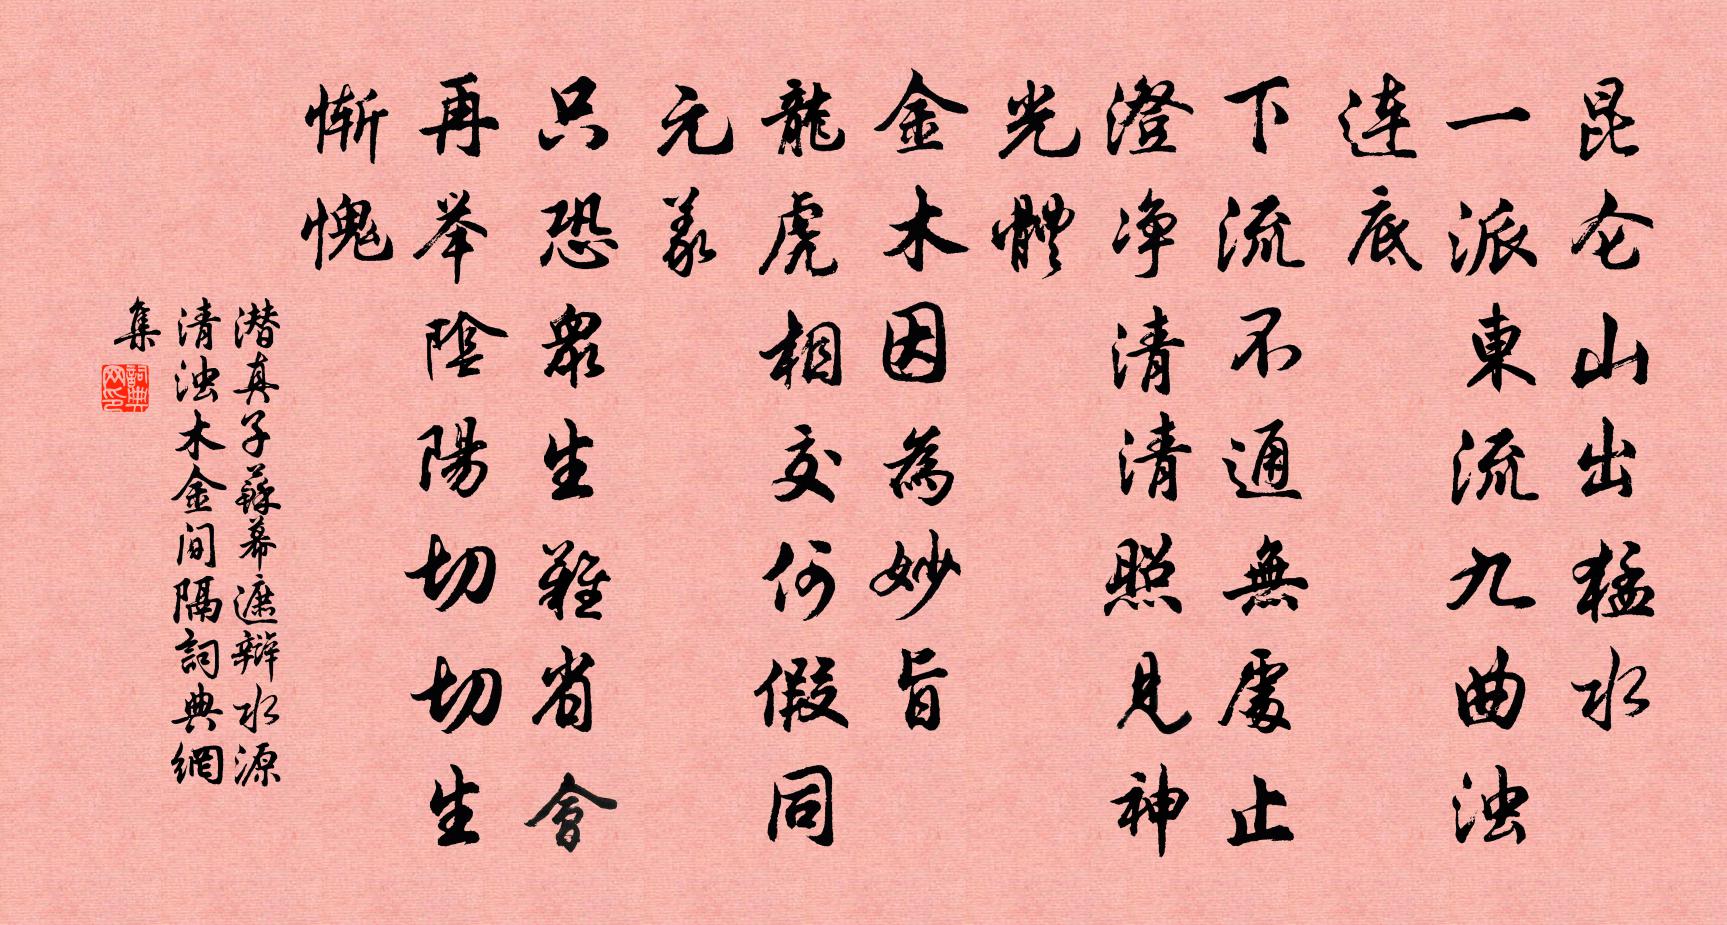 昆仑山出猛水
一派東流九曲浊
连底
下流不通無處止
澄净清清照見神
光體
金木因為妙旨
龍虎相交何假同
元義
只恐眾生難省會
再举陰陽切切生
惭愧
潜真子蘇幕遮辩水源
清浊木金间隔詞典網
集
詞典网印